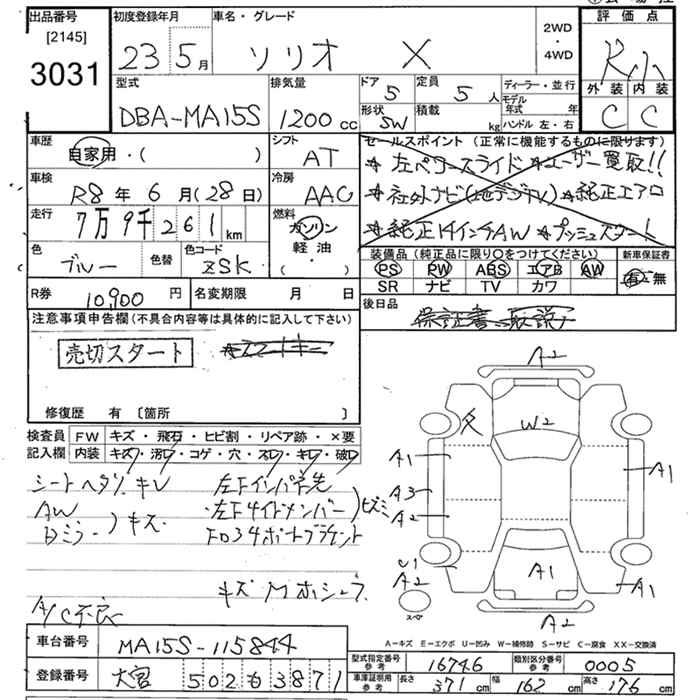 出品番号 初度登録年月 車名・グレード 2WD・4WD 評価点
[2145] 23 5月 ソリオ X R
3031 外装 内装
C C
型式 排気量 ドア 定員 ディーラー・並行
DBA-MA15S 1200cc 5 5人 モデル年式 年
形状 積載 ハンドル 左・右
SW kg
車歴 シフト セールスポイント(正常に機能するものに限ります)
自家用・( ) AT ★左パワースライド ★ユーザー買取!!
車検 冷房 ★社外ナビ(地デジTV) ★純正エアロ
R8年6月(28日) AAC ★純正14インチAW ★プッシュスタート
走行 燃料
7万9千261km ガソリン
軽油
( )
色 色替 色コード 装備品(純正品に限り○をつけてください) 新車保証書
ブルー ZSK PS PW ABS エアB AW 有・無
SR ナビ TV カワ
R券 名変期限 後日品
10,900円 月 日 保証書 取説
注意事項申告欄(不具合内容等は具体的に記入して下さい)
売切スタート
修復歴 有 〔箇所 〕
検査員記入欄 FW キズ・飛石・ヒビ割・リペア跡・×要
内装 キズ・汚レ・コゲ・穴・スレ・キレ・破レ
シートヘタリキレ 左下インパネ先
AW 左下サイドメンバー ヒズミ
Bミラー キズ
キズ
A/C不良
A2
W2
A1
A1
A3
A2
A2
A1
A1
スペア
A2
A−キズ E−エクボ U−凹み W−補修跡 S−サビ C−腐食 XX−交換済
車台番号 MA15S-115844
登録番号 大宮 502 も 3871
型式指定番号 参考 16746 類別区分番号 参考 0005
車庫証明用 参考 長さ 371cm 幅 162cm 高さ 176cm